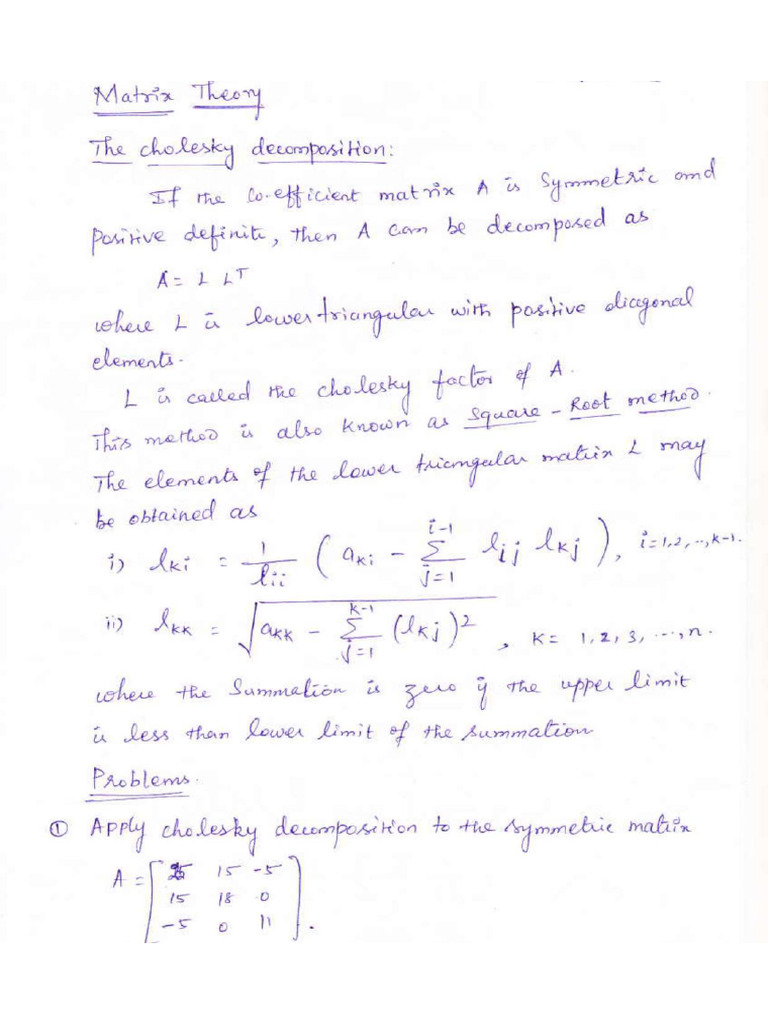 Matrix Theory
The cholesky decomposition:
If the co-efficient matrix A is symmetric and
Positive definite, then A can be decomposed as
A = L L^T
where L is lower triangular with positive diagonal
elements.
L is called the cholesky factor of A.
This method is also known as Square - Root method.
The elements of the lower triangular matrix L may
be obtained as
i) l_{ki} = \frac{1}{l_{ii}} ( a_{ki} - \sum_{j=1}^{i-1} l_{ij} l_{kj} ), i=1,2,..,k-1.
ii) l_{kk} = \sqrt{a_{kk} - \sum_{j=1}^{k-1} (l_{kj})^2}, k= 1,2,3,...,n.
where the summation is zero if the upper limit
is less than lower limit of the summation
Problems.
① Apply cholesky decomposition to the symmetric matrix
A = [ 25 15 -5
15 18 0
-5 0 11 ].